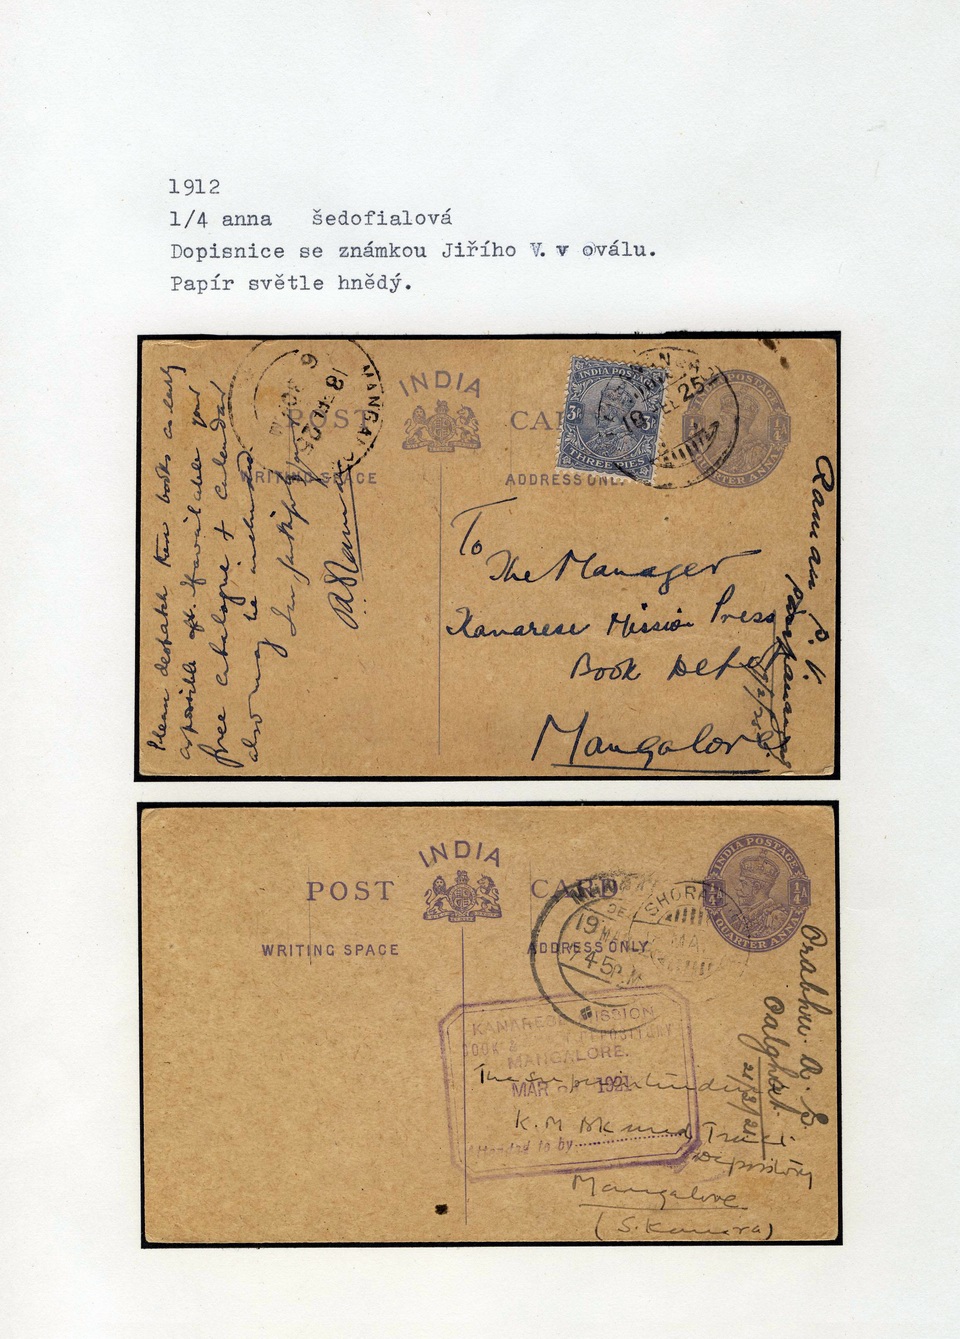 1912
1/4 anna šedofialová
Dopisnice se známkou Jiřího V. v oválu.
Papír světle hnědý.
INDIA
POST CAR
WRITING SPACE
ADDRESS ONLY
INDIA POSTAGE
3P 3P
THREE PIES
POSTAGE
¼A
QUARTER ANNA
MANGAL
18
25
Please despatch the books as early
as possible
free catalogue & calendar
also may be
To
The Manager
Kanarese Mission Press
Book Depot
Mangalore
Raman P. V.
INDIA
POST CARD
WRITING SPACE
ADDRESS ONLY
INDIA POSTAGE
¼A ¼A
QUARTER ANNA
SHORA
19
45 P.M.
KANARESE MISSION
BOOK & DEPOSITORY
MANGALORE.
MAR 1921
Attended to by
The Superintendent
K. M. Bk and Tract
Depository
Mangalore
(S. Kanara)
Prabhu. A. S.
Palghat
21/3/21